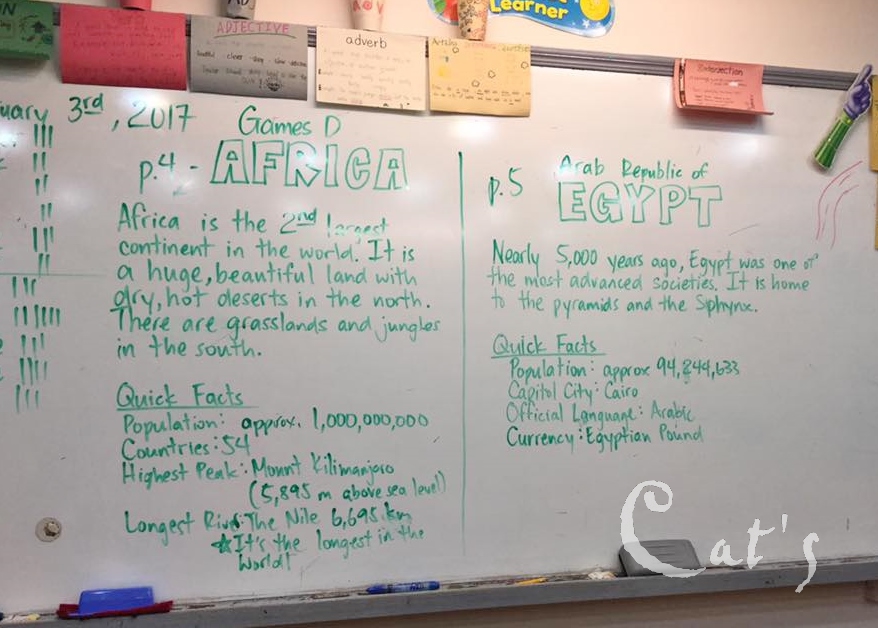 Learner
ADJECTIVE
adverb
3rd, 2017
Games D
p.4 - AFRICA
Africa is the 2nd largest
continent in the world. It is
a huge, beautiful land with
dry, hot deserts in the north.
There are grasslands and jungles
in the south.
Quick Facts
Population: approx. 1,000,000,000
Countries: 54
Highest Peak: Mount Kilimanjoro
(5,895 m above sea level)
Longest River: The Nile 6,695 km
☆It's the longest in the
World!
p.5
Arab Republic of
EGYPT
Nearly 5,000 years ago, Egypt was one of
the most advanced societies. It is home
to the pyramids and the Sphynx.
Quick Facts
Population: approx 94,244,633
Capitol City: Cairo
Official Language: Arabic
Currency: Egyptian Pound
Cat's